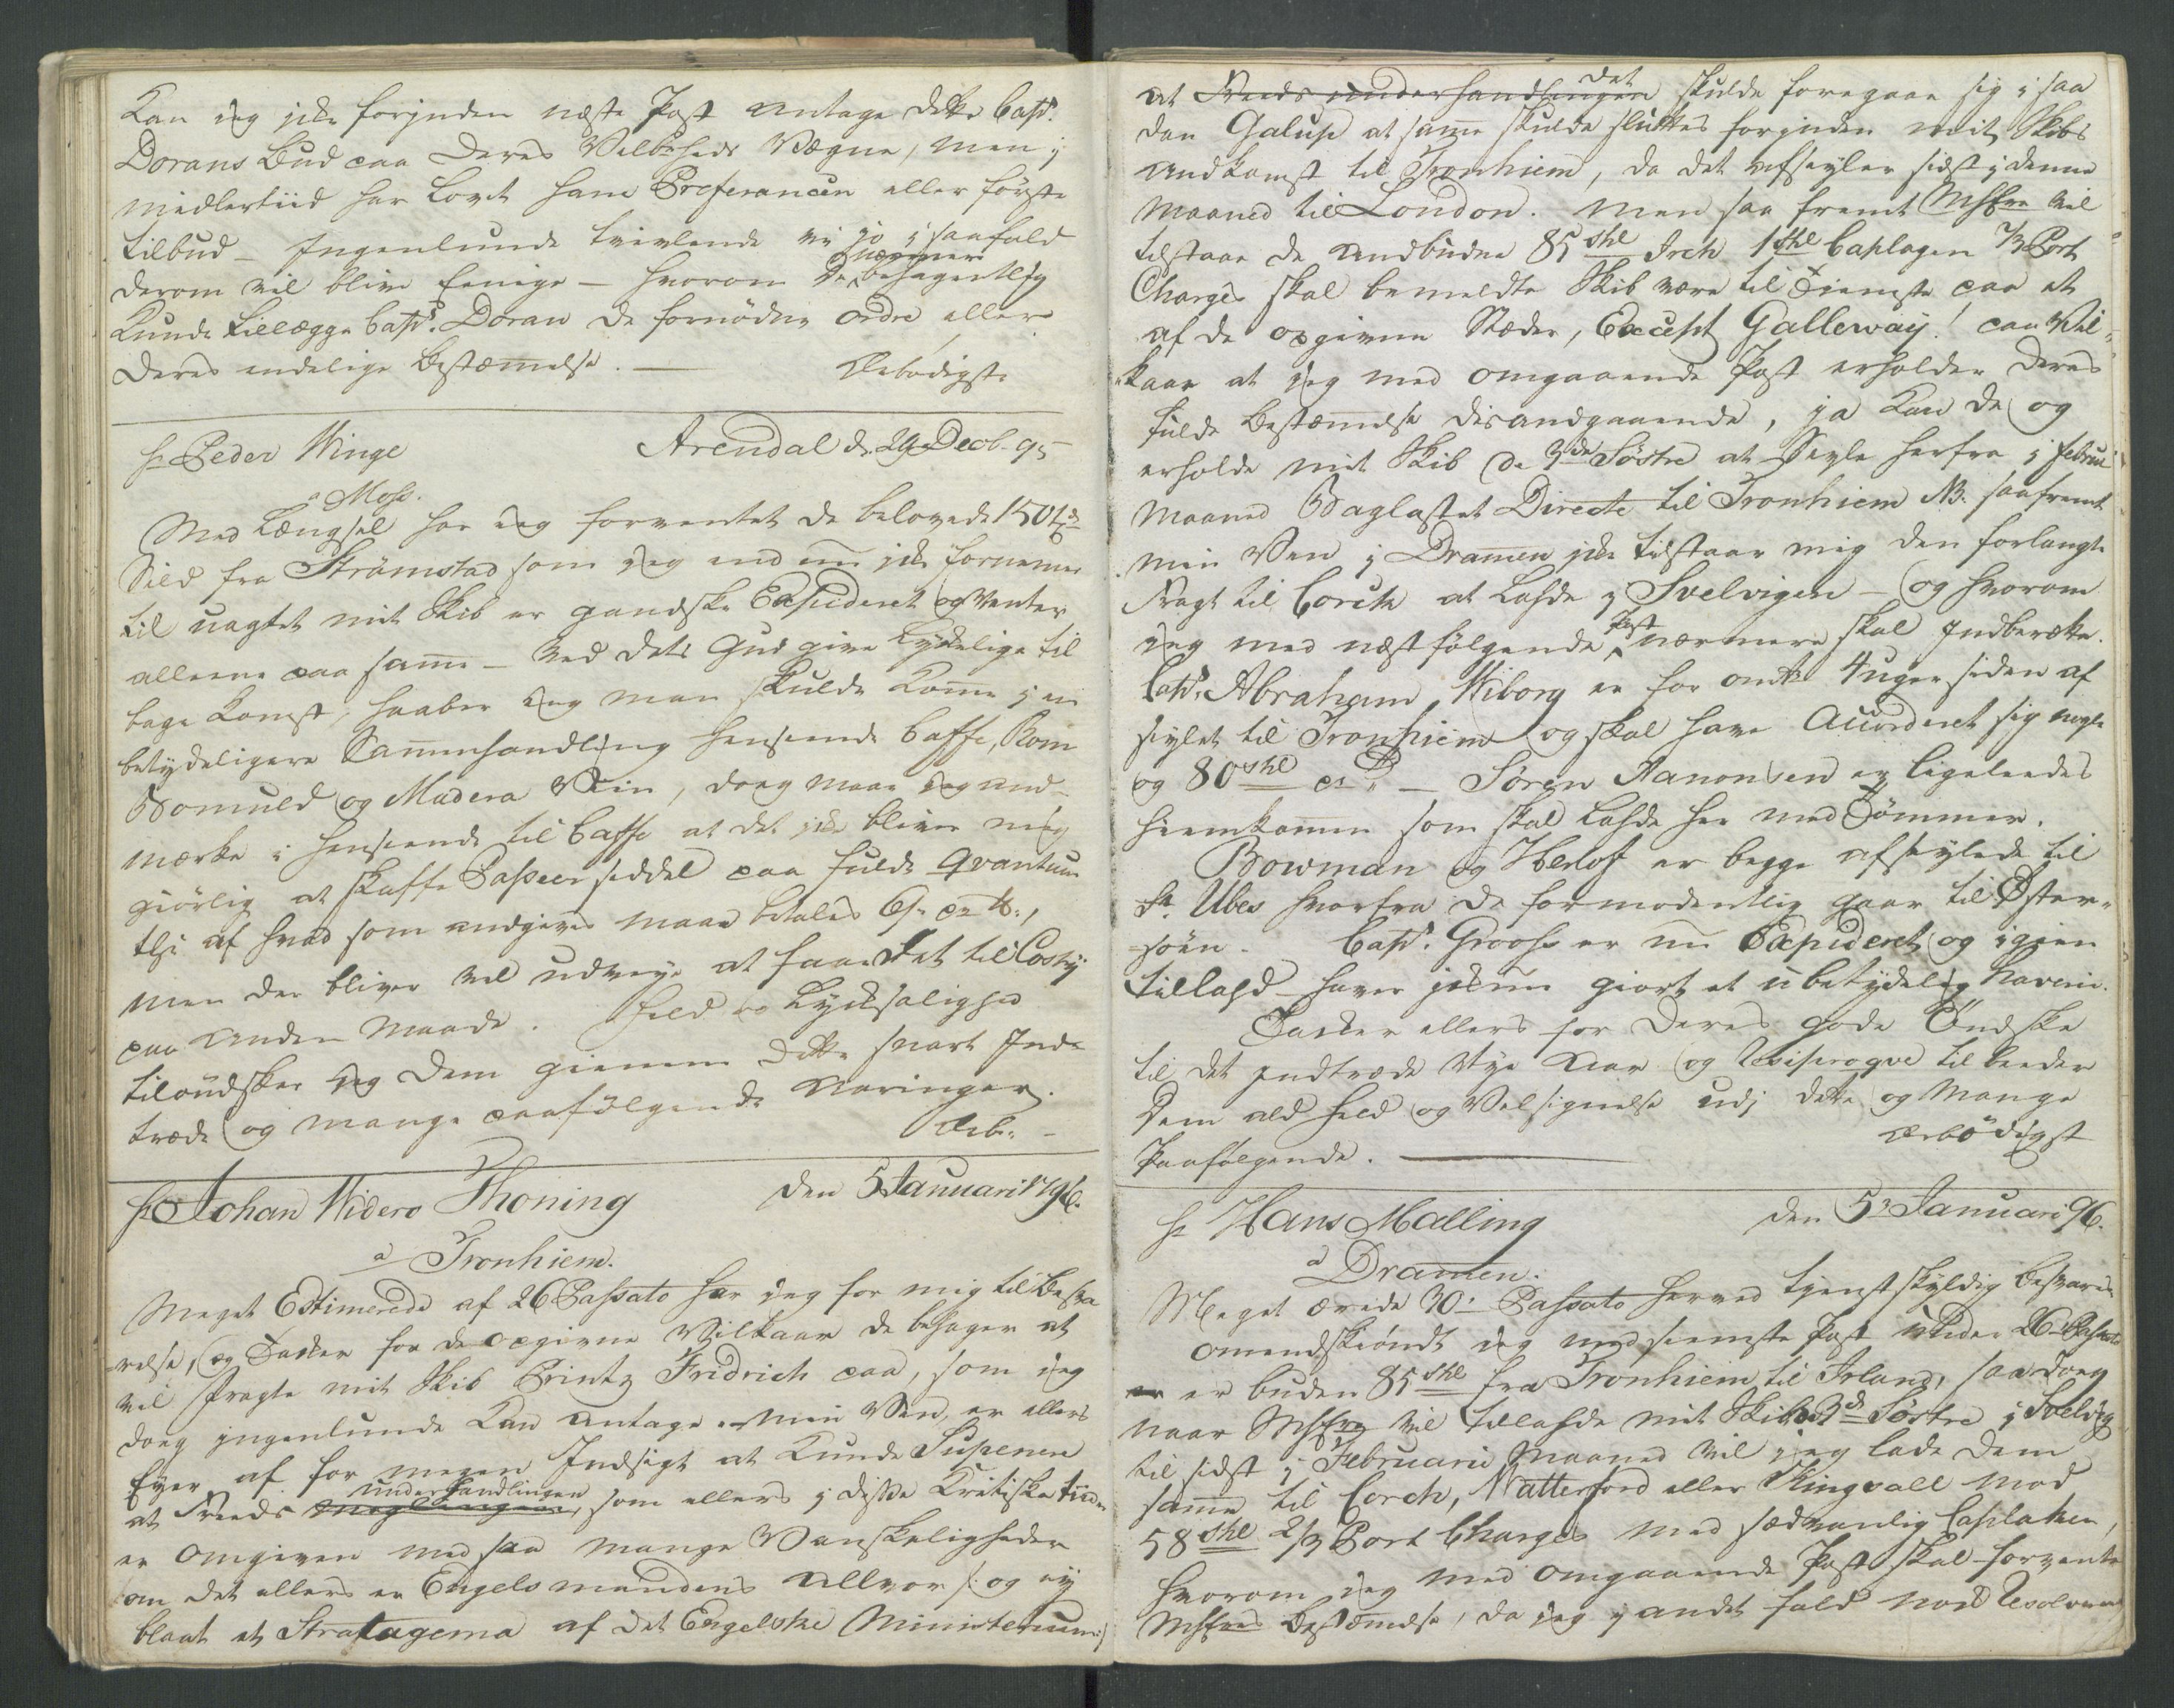 Kan jeg icke forinden næste Post antage dette Capt.
Dorans Bud paa Deres Velbrheds Vægne, men i
midlertiid har Lovet ham Preferancen eller første
tilbud – Ingenlunde tvivlende vi jo i saafald
derom vil blive Eenige – hvorom De nærmere behagentlig
Kunde tillægge Capt. Doran de fornødne Ordre eller
Deres endelige Bestæmelse. — Ærbødigste
Hr Peder Winge Arendal d. 29 Decb. 95
a Moss.
Med Længsel har jeg forventet de belovede 150 td
Sild fra Strømstad som jeg end nu icke fornemmer
til uagtet mit Skib er gandske Expideret og venter
alleene paa samme – Ved dets Gud give Lykkelige til
bage Komst, haaber jeg man skulde Komme i en
betydeligere Sammenhandling henseende Caffe, Rom
Bomuld og Madera Viin, dog maae jeg an¬
mærke i henseende til Caffe at det icke bliver mig
giørlig at skaffe Passeer seddel paa fulde Qvantum
thi af hvad som angives maae betales 6s. pr. ℔.,
men der bliver vel udveye at faae det til Costy
paa anden Maade. Held og Lycksalighed
tilønsker jeg Dem giennem dette snart Ind¬
træde og mange paafølgende Aaringer.
Ærb. –
Hr Johan Widero Thoning den 5 Januari 1796.
a Tronhiem.
Meget Estimerede af 26 Passato har jeg for mig til Besva
relse, og Tacker for de opgivne Vilkaar De behager at
vil fragte mit Skib Printz Fridrich paa, som jeg
dog ingenlunde Kan antage. Min Ven, er ellers
Eyer af for megen Indsigt at Kunde Supenere
at Freeds underhandlingen, som ellers i disse Kritiske tiider
er Omgiven med saa mange Vanskeligheder
om det ellers er Engelsmandens Allvor /: og ey
blaat et Stratagema af det Engelske Ministerium :/
at Freeds underhandlingen det skulde foregaae sig i saa
dan Galup at samme skulde sluttes forinden mit Skibs
Ankomst til Tronhiem, da det afseyler sidst i denne
Maaned til London. Men saa fremt MHhre vil
tilstaae de andbudne 85 shl Irch 1 shl Caplagen ⅔ Port
Charges skal bemeldte Skib være til Tieneste paa et
af de opgivne Stæder, Except Galleway! paa Vil¬
kaar at jeg med omgaaende Post erholder Deres
fulde Bestæmelse desangaaende, ja Kan De og
erholde mit Skib de 3de Søstre at Seyle herfra i Februari
Maaned Baglastet Directe til Tronhiem NB. saafremt
min Ven i Dramen icke tilstaar mig den forlangte
Fragt til Corck at Lahde i Svelvigen – og hvorom
jeg med næstfølgende Post nærmere skal Indberætte.
Capt. Abraham Wiborg er for omtr 4 uger siden af
seylet til Tronhiem og skal have Accorderet sig nogle
og 80 shl pr – Søren Aanonsen er ligeleedes
hiemkommen som skal Lahde her med Tømmer.
Bowman og Wenof er begge afseylede til
St. Ubes hvorfra de formodentlig gaar til Øster¬
søen. Capt. Groose er nu Expideret og igien
tillahd – haver icken giort et ubetydelig Haverie.
Tacker ellers for Deres gode Ønske
til det indtræde Nye Aar og Resiproqve tilbeeder
Dem ald Held og Velsignelse udi dette og mange
Paafølgende. — ærbødigst
Hr Hans Malling den 5 Januari 96.
a Dramen.
Meget ærede 30. Passato herved tienstskyldig besvares
omendskiøndt jeg med seeneste Post under 26 Passato
er buden 85 shl fra Tronhiem til Irland, saa dog
naar MHhre vil tillahde mit Skib de 3de Søstre i Svelvig
til sidst i Februarii Maaned vil jeg lade dem
samme til Corck, Watterford eller Kingsall mod
58 shl 2/3 Port Charges med sædvanlig Caplaken,
hvorom jeg med omgaaende Post skal forvente
MHhres Bestæmelse, da jeg i andet fald